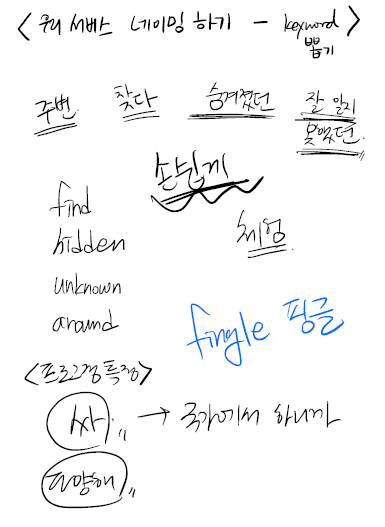 <우리 서비스 네이밍 하기 - keyword 뽑기
주변 찾다 숨겨졌던 잘 알지 못했던
손쉽게
find
hidden 체험
unknown
around
fingle 핑글
<프로그램 특징>
싸다 → 국가에서 하니까
다양해